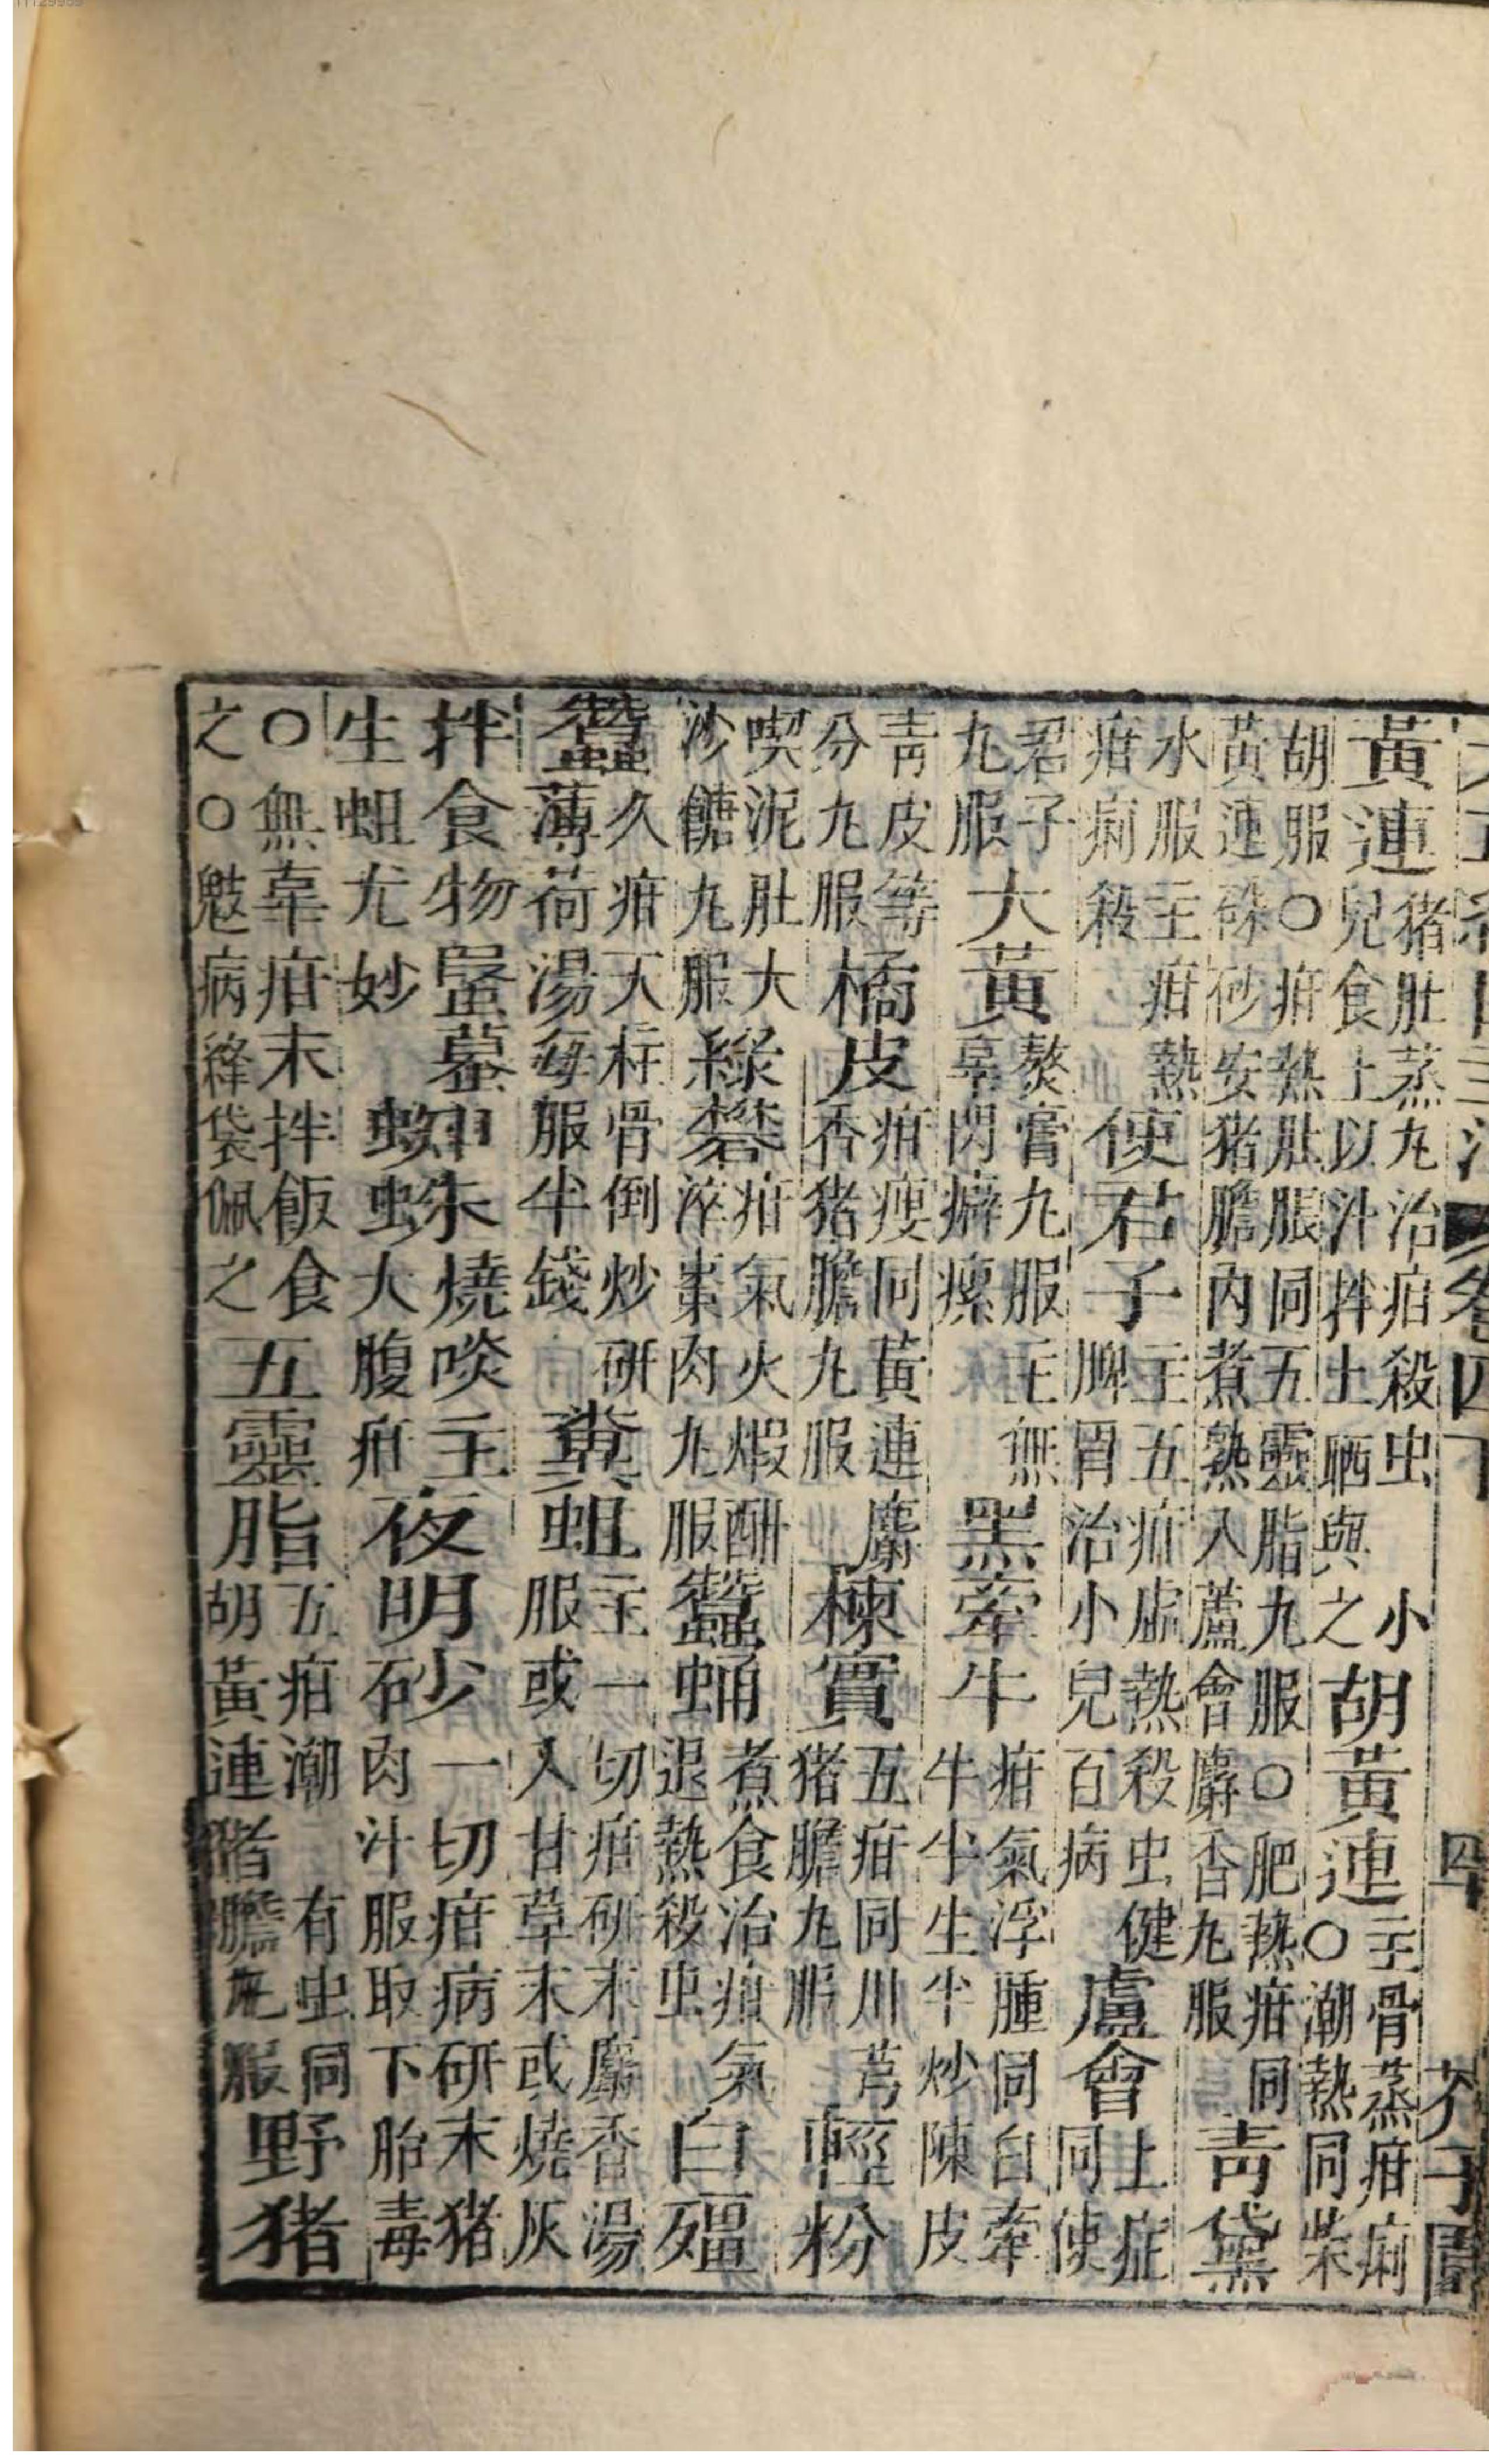 卷四下 四 芥子園
黃連 豬肚蒸丸治疳殺虫小
兒食土以汁拌土晒與之 胡黃連 主骨蒸疳痢
○潮熱同柴
胡服○疳熱肚脹同五靈脂丸服○肥熱疳同
黃連硃砂安猪膽內煮熟入蘆會麝香丸服 青黛
水服主疳熱
疳痢殺 使君子 主五疳虛熱殺虫健
脾胃治小兒百病 盧會 上症
同使
君子
丸服 大黃 熬膏丸服主無
辜閃癖瘰 黑牽牛 疳氣浮腫同白牽
牛半生半炒陳皮
青皮等
分丸服 橘皮 疳瘦同黃連麝
香猪膽丸服 楝實 五疳同川芎
猪膽丸服 輕粉
喫泥肚大
沙餹丸服 綠礬 疳氣火煆酣
淬棗肉丸服 蠶蛹 煮食治疳氣
退熱殺虫 白殭
蠶 久疳天柱骨倒炒研
薄荷湯每服半錢 糞蛆 主一切疳研末麝香湯
服或入甘草末或燒灰
拌食物蟇
生蛆尤妙 蜘蛛 燒啖主
大腹疳 夜明砂 一切疳病研末猪
肉汁服取下胎毒
○無辜疳末拌飯食
之○鬾病絳袋佩之 五靈脂 五疳潮有虫同
胡黃連猪膽丸服 野猪